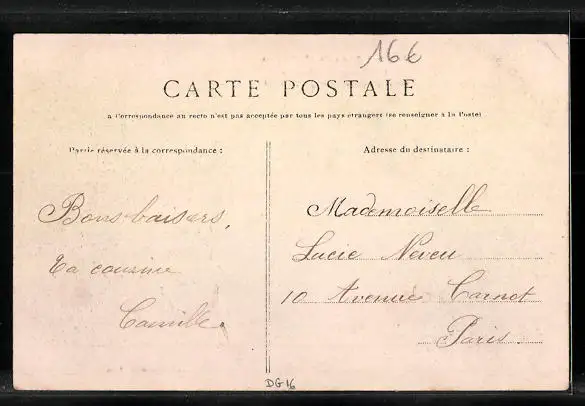 16€
CARTE POSTALE
a Correspondance au recto n'est pas acceptée par tous les pays étrangers (se renseigner à la Poste)
Partie réservée à la correspondance :
Adresse du destinataire :
Bons baisers,
Ta cousine
Camille.
Mademoiselle
Lucie Neveu
10 Avenue Carnot
Paris.
DG16